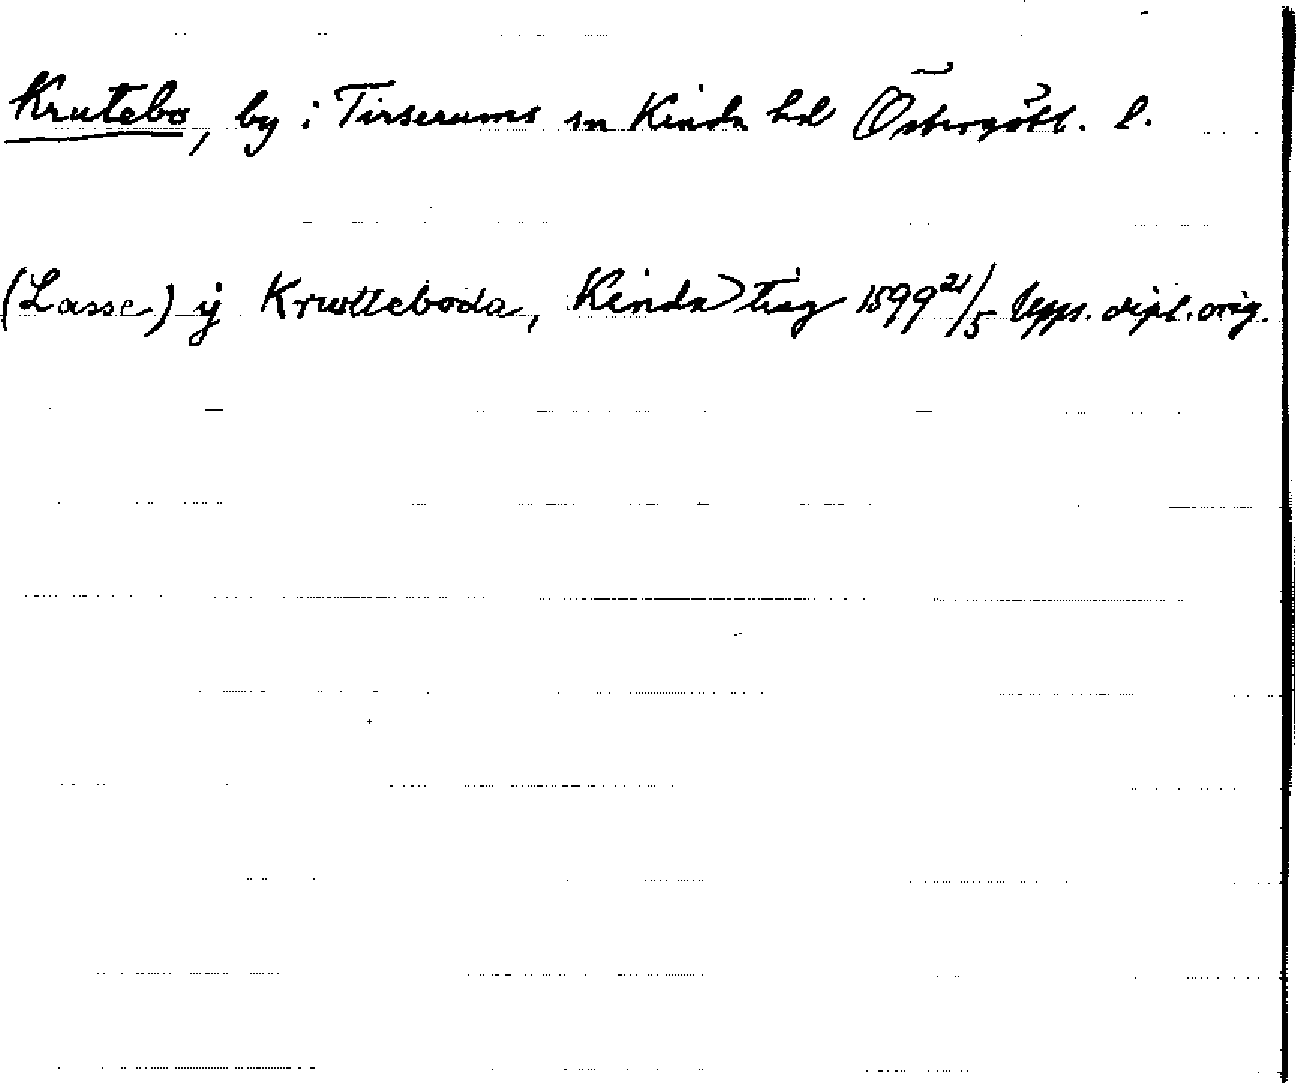 Krutebo, by i Tirserums sn Kinda hd Östergötl. l.
(Lasse) ij Krwtteboda, Kinda ting 1599 21/5 Upps. dipl. orig.